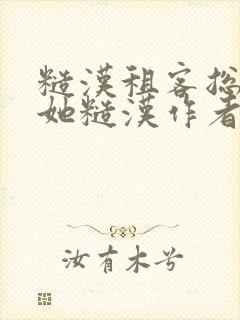 糙漢租客総
她糙漢作者
汝有木兮